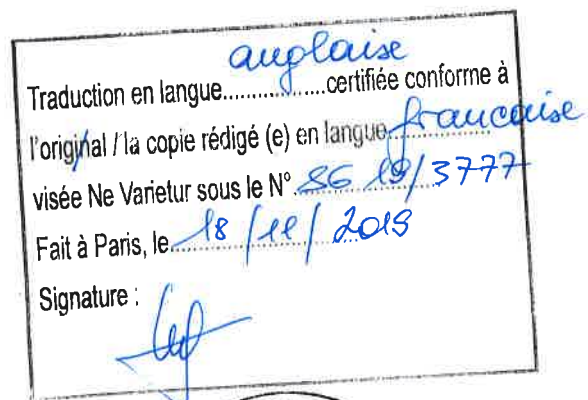 Traduction en langue anglaise certifiée conforme à
l'original / la copie rédigé (e) en langue francaise
visée Ne Varietur sous le N° SG 19/3777
Fait à Paris, le 18/11/2019
Signature :